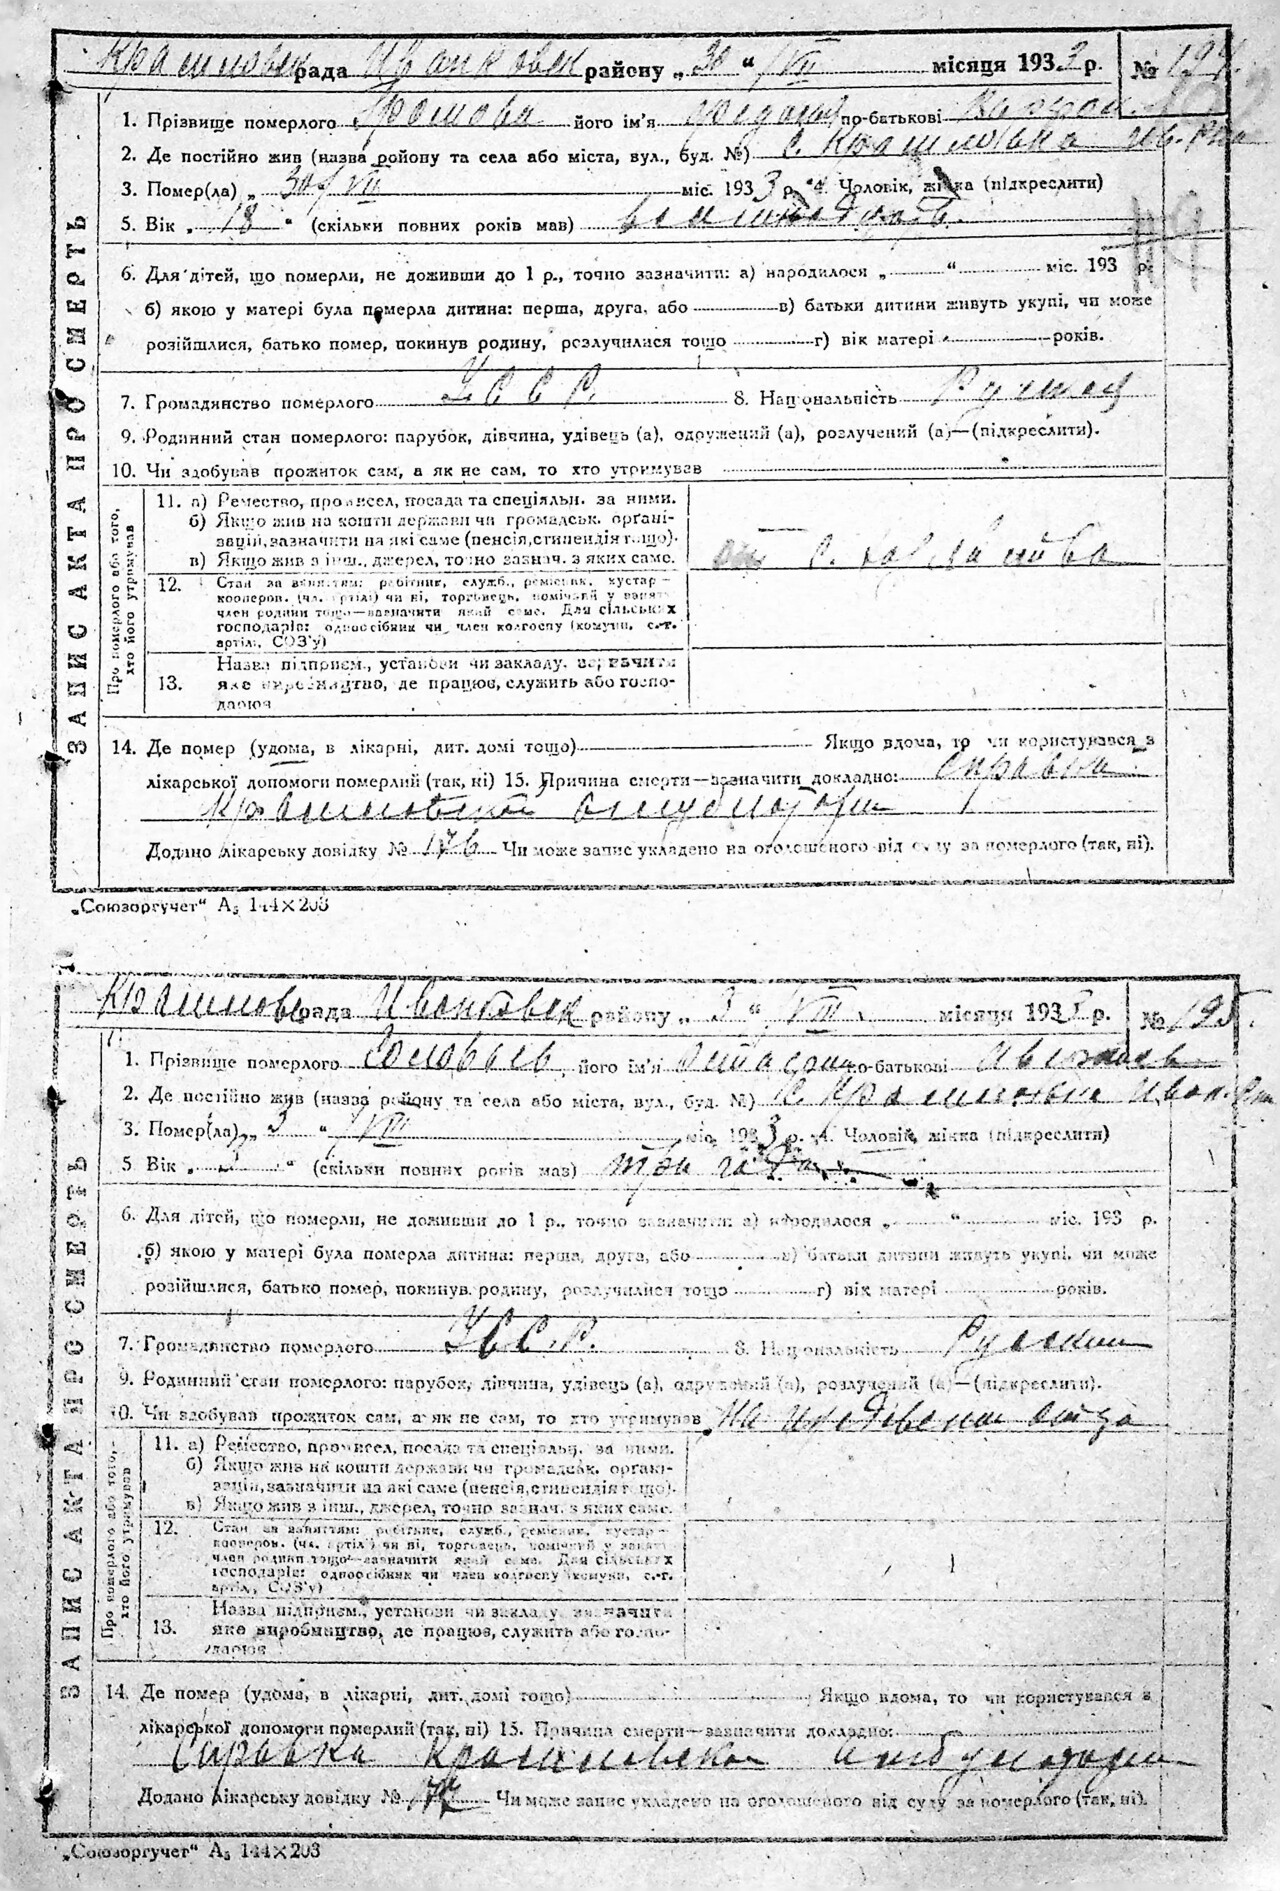 рада Иванковск району „ 30 “ /VII місяця 1933 р. № 194.
1. Прізвище померлого Громова його ім'я по-батькові
2. Де постійно жив (назва району та села або міста, вул., буд. №) с.
3. Помер(ла) „ 30 /VII міс. 1933 р. 4. Чоловік, жінка (підкреслити)
5. Вік „ 18 “ (скільки повних років мав)
6. Для дітей, що померли, не доживши до 1 р., точно зазначити: а) народилося „ “ міс. 193 р.
б) якою у матері була померла дитина: перша, друга, або в) батьки дитини живуть укупі, чи може
розійшлися, батько помер, покинув родину, розлучилися тощо г) вік матері років.
7. Громадянство померлого УССР. 8. Національність
9. Родинний стан померлого: парубок, дівчина, удівець (а), одружений (а), розлучений (а)—(підкреслити).
10. Чи здобував прожиток сам, а як не сам, то хто утримував
11. а) Ремество, промисел, посада та спеціяльн. за ними.
б) Якщо жив на кошти держави чи громадськ. орґані-
зацій, зазначити на які саме (пенсія, стипендія тощо).
в) Якщо жив з інш., джерел, точно зазнач. з яких саме.
12. Стан за заняттям: робітник, служб., ремісник, кустар—
кооперов. (чл. артілі) чи ні, торговець, помічний у занят.
член родини тощо—зазначити який саме. Для сільських
господарів: одноосібник чи член колгоспу (комуни, с.-г.
артіл., СОЗ'у)
13. Назва підприєм., установи чи закладу, зазначити
яке виробництво, де працює, служить або госпо-
дарює
Про померлого або того, хто його утримував
ЗАПИС АКТА ПРО СМЕРТЬ
14. Де помер (удома, в лікарні, дит. домі тощо) Якщо вдома, то чи користувався з
лікарської допомоги померлий (так, ні) 15. Причина смерти—зазначити докладно: справка
Додано лікарську довідку № 176 Чи може запис укладено на оголошеного від суду за померлого (так, ні).
„Союзоргучет“ А₅ 144×203
рада Иванковск району „ 3 “ /VIII місяця 1933 р. № 195.
1. Прізвище померлого його ім'я по-батькові
2. Де постійно жив (назва району та села або міста, вул., буд. №) с.
3. Помер(ла) „ 3 “ /VIII міс. 1933 р. 4. Чоловік, жінка (підкреслити)
5 Вік „ 3 “ (скільки повних років мав) три года
6. Для дітей, що померли, не доживши до 1 р., точно зазначити: а) народилося „ “ міс. 193 р.
б) якою у матері була померла дитина: перша, друга, або в) батьки дитини живуть укупі, чи може
розійшлися, батько помер, покинув родину, розлучилися тощо г) вік матері років.
7. Громадянство померлого УССР. 8. Національність Русский
9. Родинний стан померлого: парубок, дівчина, удівець (а), одружений (а), розлучений (а)—(підкреслити).
10. Чи здобував прожиток сам, а як не сам, то хто утримував На иждивении отца
11. а) Ремество, промисел, посада та спеціяльн. за ними.
б) Якщо жив на кошти держави чи громадськ. орґані-
зацій, зазначити на які саме (пенсія, стипендія тощо).
в) Якщо жив з інш., джерел, точно зазнач. з яких саме.
12. Стан за заняттям: робітник, служб., ремісник, кустар—
кооперов. (чл. артілі) чи ні, торговець, помічний у занят.
член родини тощо—зазначити який саме. Для сільських
господарів: одноосібник чи член колгоспу (комуни, с.-г.
артіл., СОЗ'у)
13. Назва підприєм., установи чи закладу, зазначити
яке виробництво, де працює, служить або госпо-
дарює
Про померлого або того, хто його утримував
ЗАПИС АКТА ПРО СМЕРТЬ
14. Де помер (удома, в лікарні, дит. домі тощо) Якщо вдома, то чи користувався з
лікарської допомоги померлий (так, ні) 15. Причина смерти—зазначити докладно:
Справка
Додано лікарську довідку № 177 Чи може запис укладено на оголошеного від суду за померлого (так, ні).
„Союзоргучет“ А₅ 144×203